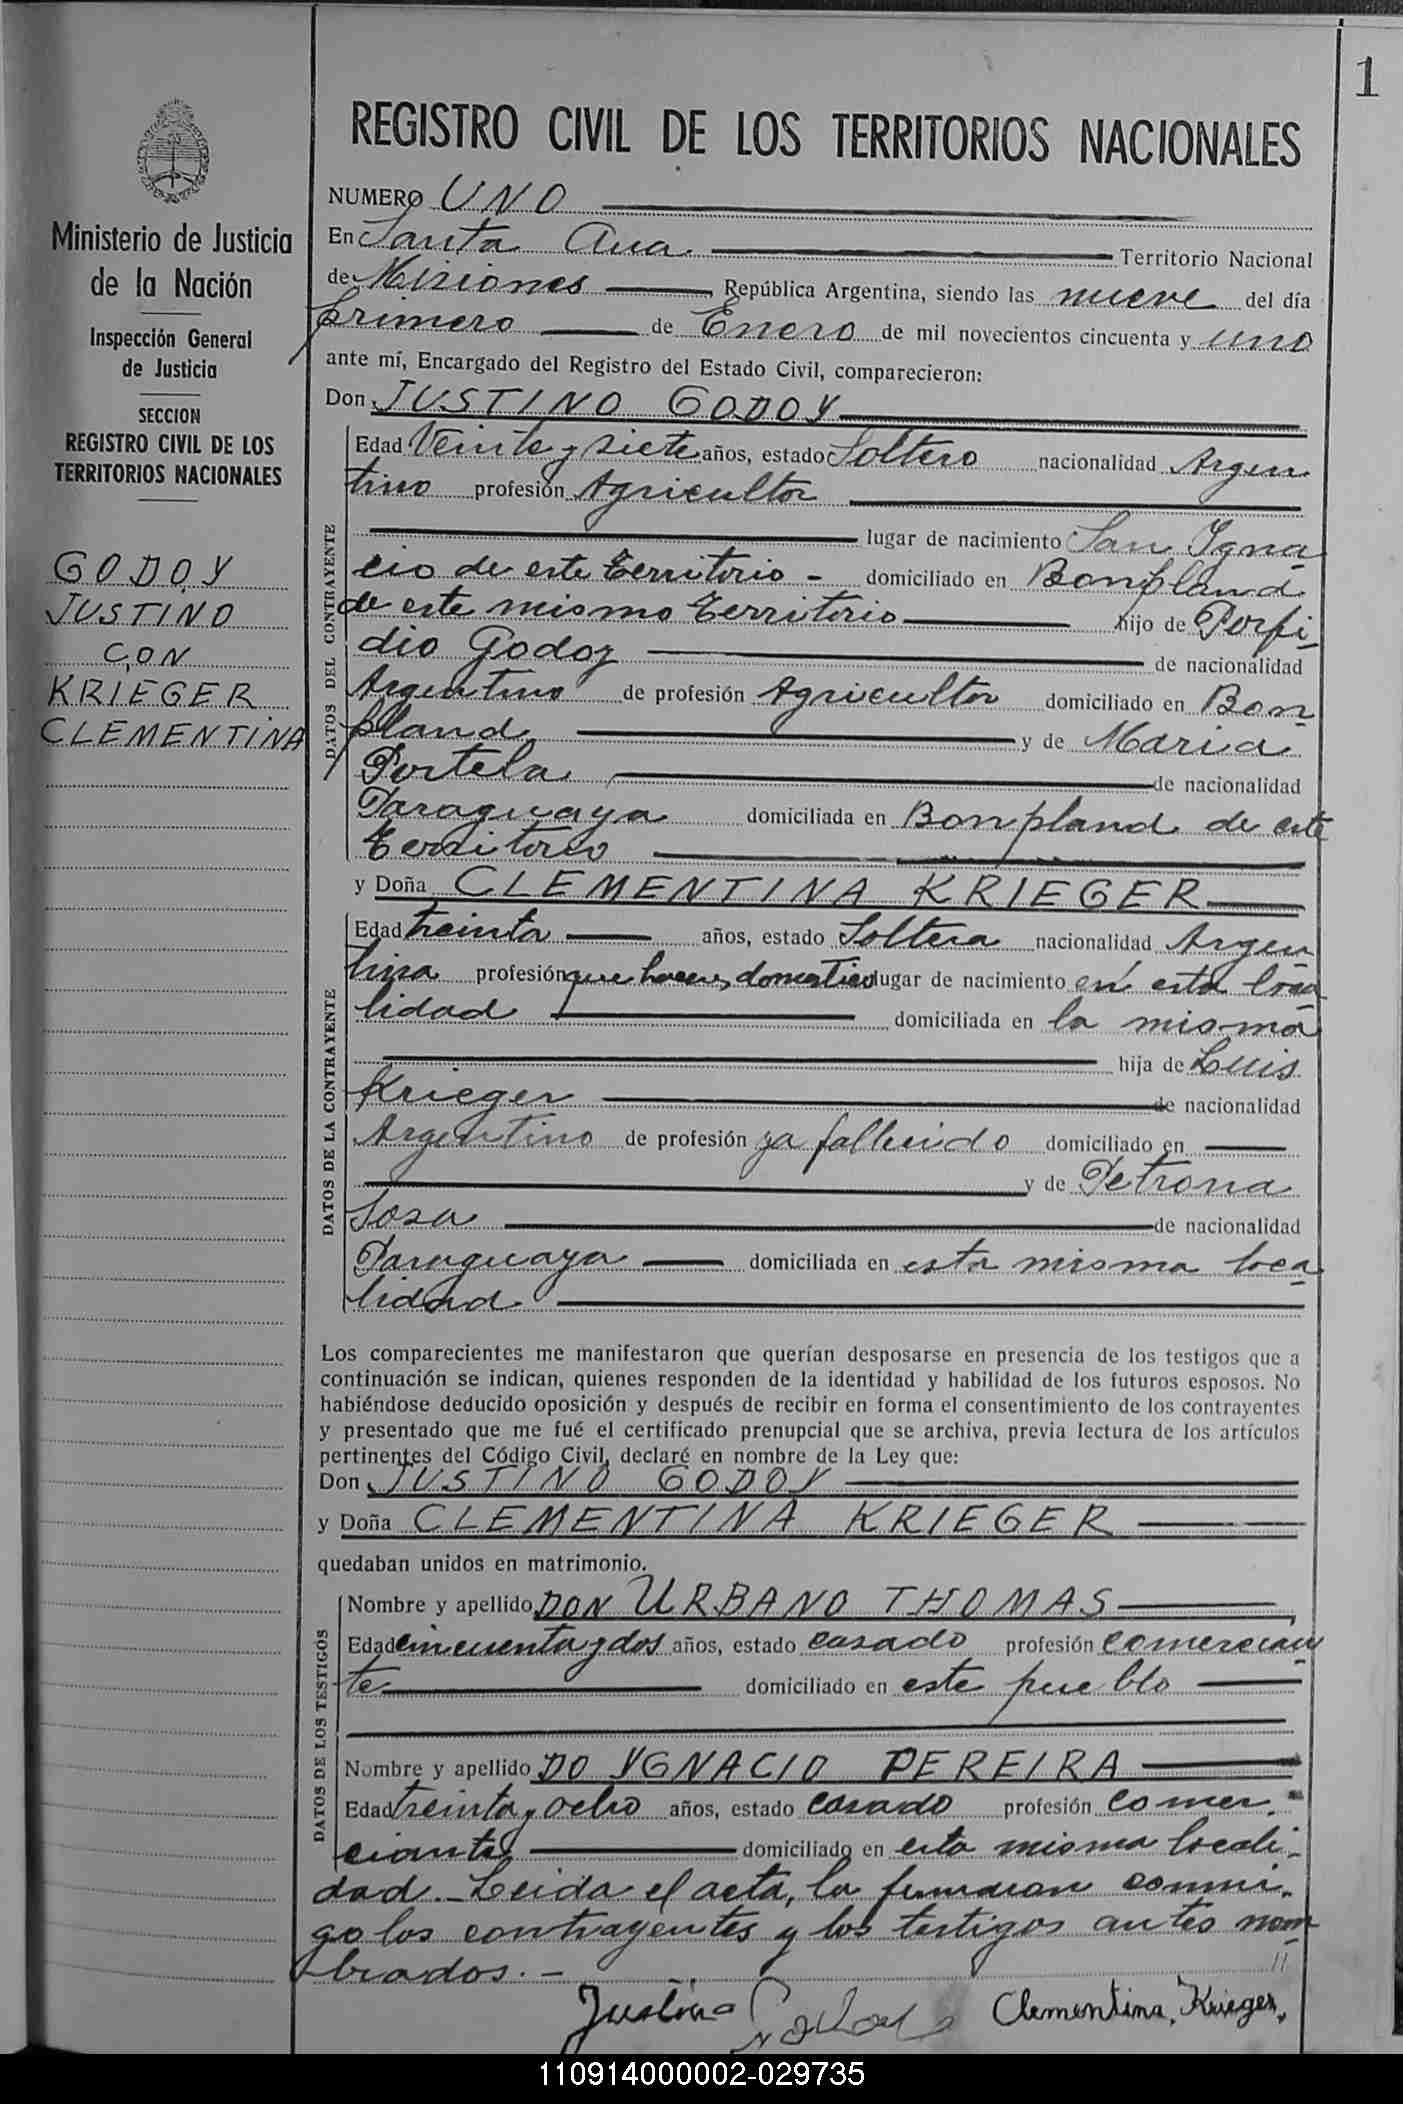 1
REGISTRO CIVIL DE LOS TERRITORIOS NACIONALES
Ministerio de Justicia
de la Nación
Inspección General
de Justicia
SECCION
REGISTRO CIVIL DE LOS
TERRITORIOS NACIONALES
GODOY
JUSTINO
CON
KRIEGER
CLEMENTINA
NUMERO UNO
En Santa Ana Territorio Nacional
de Misiones, República Argentina, siendo las nueve del día
primero de Enero de mil novecientos cincuenta y uno
ante mí, Encargado del Registro del Estado Civil, comparecieron:
Don JUSTINO GODOY
DATOS DEL CONTRAYENTE
Edad Veinte y siete años, estado Soltero nacionalidad Argen
tino profesión Agricultor
lugar de nacimiento San Igna
cio de este Territorio - domiciliado en Bonpland
de este mismo Territorio hijo de Porfi-
dio Godoy de nacionalidad
Argentino de profesión Agricultor domiciliado en Bon
pland y de Maria
Portela de nacionalidad
Paraguaya domiciliada en Bonpland de este
Territorio
y Doña CLEMENTINA KRIEGER
DATOS DE LA CONTRAYENTE
Edad treinta años, estado Soltera nacionalidad Argen
tina profesión que haceres domestico lugar de nacimiento en esta loca
lidad domiciliada en la misma
hija de Luis
Krieger de nacionalidad
Argentino de profesión ya fallecido domiciliado en
y de Petrona
Sosa de nacionalidad
Paraguaya domiciliada en esta misma loca
lidad
Los comparecientes me manifestaron que querían desposarse en presencia de los testigos que a
continuación se indican, quienes responden de la identidad y habilidad de los futuros esposos. No
habiéndose deducido oposición y después de recibir en forma el consentimiento de los contrayentes
y presentado que me fué el certificado prenupcial que se archiva, previa lectura de los artículos
pertinentes del Código Civil, declaré en nombre de la Ley que:
Don JUSTINO GODOY
y Doña CLEMENTINA KRIEGER
quedaban unidos en matrimonio.
DATOS DE LOS TESTIGOS
Nombre y apellido DON URBANO THOMAS
Edad cincuenta y dos años, estado casado profesión comercian
te domiciliado en este pueblo
Nombre y apellido DO YGNACIO PEREIRA
Edad treinta y ocho años, estado casado profesión comer-
ciante domiciliado en esta misma locali-
dad.- Leida el acta, la firmaron conmi-
go los contrayentes y los testigos antes nom
brados.-
Justino Godoy Clementina Krieger.
110914000002-029735